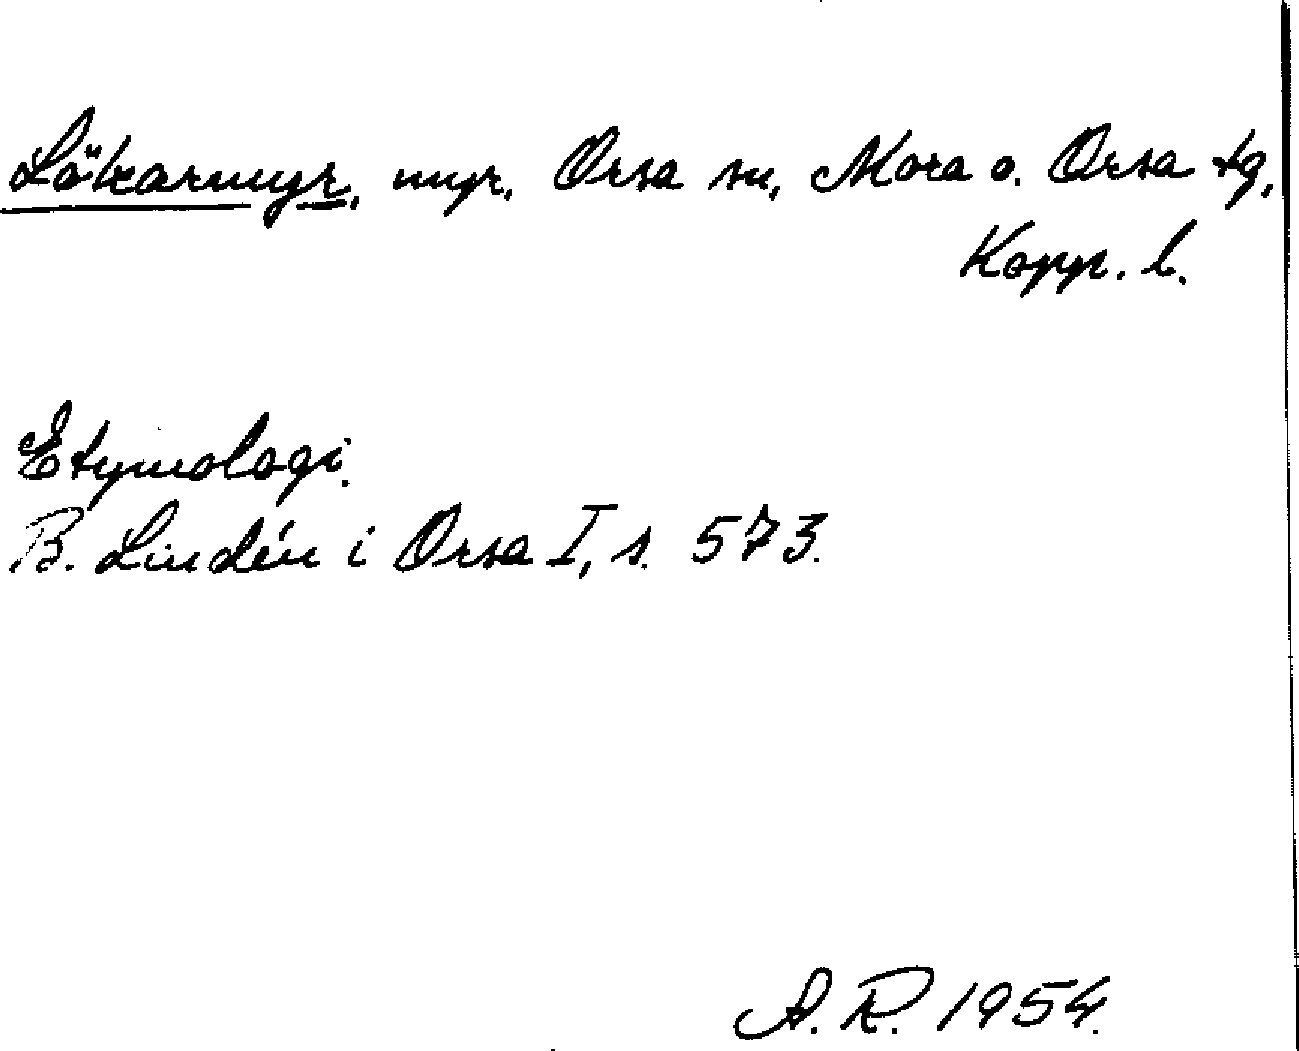 Lökarmyr, myr, Orsa sn, Mora o. Orsa tg,
Kopp. l.
Etymologi.
B. Lindén i Orsa I, s. 573.
A. R. 1954.